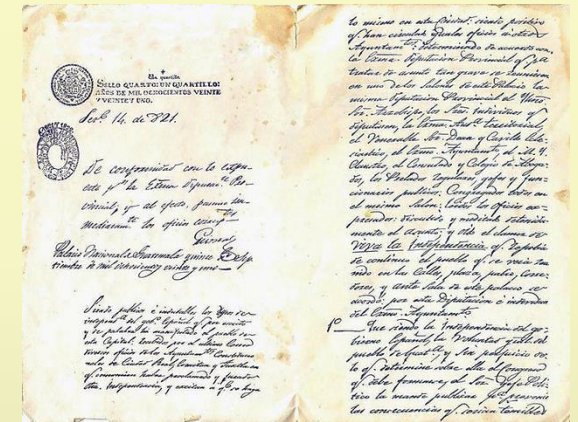 Un quartillo
SELLO QUARTO: UN QUARTILLO:
AÑOS DE MIL OCHOCIENTOS VEINTE
Y VEINTE Y UNO.
14. de 821.
De conformidad con lo
la Excma
y al efecto,
los oficios
Palacio Nacional de Guatemala quince de Sep
tiembre de mil ochocientos veinte y uno
Siendo publicos é indudables los deseos de
independ.ª del gob.º Español q.e por escrito
y de palabra ha manifestado el pueblo de
esta Capital: recibidos por el ultimo Correo
diversos oficios de los Ayuntam.tos Constitucio
nales de Ciudad Real, Comitan y Tuxtla en
q.e comunican haber proclamado y jurado
dha. Independencia, y excitan á q.e se haga
lo mismo en esta Ciudad: siendo positivo
q.e han circulado iguales oficios á otros
Ayuntam.tos: determinado de acuerdo con
la Exma. Diputacion Provincial q.e p.a
tratar de asunto tan grave se reuniesen
en uno de los Salones de este Palacio la
misma Diputacion Provincial el Illmo
Sr. Arzobispo los Sres. individuos q.e
diputasen, la Exma. Aud.a territorial,
el Venerable Sr. Dean y Cavildo Ecle
siastico, el Exmo. Ayuntam.to el M. Y.
Claustro, el Consulado y Colegio de Aboga
dos, los Prelados regulares, gefes y fun
cionarios publicos: Congregados todos en
el mismo Salon: leidos los oficios ex
presados: discutido y meditado detenida
mente el asunto; y oido el clamor de
Viva la Independencia q.e repetia
de continuo el pueblo q.e se veia reu
nido en las Calles, plaza, patio, Corre
dores, y ante Sala de este palacio, se
acordó: por esta Diputacion é individuos
del Exmo. Ayuntam.to
1.º Que siendo la Independencia del go
bierno Español, la Voluntad gral. del
pueblo de Guat.a, y sin perjuicio de
lo q.e determine sobre ella el Congreso
q.e debe formarse, el Sor. Gefe Poli
tico la mande publicar p.a prevenir
las consecuencias q.e serian temibles